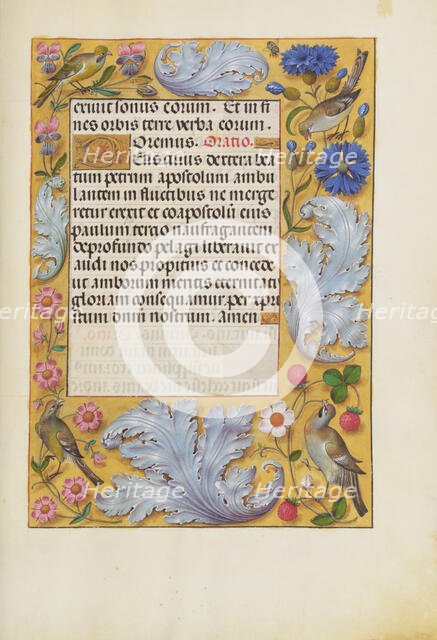 exiuit sonus eorum. Et in fi
nes orbis terre verba eorum.
Oremus. Oratio.
Deus cuius dextera bea
tum petrum apostolum ambu
lantem in fluctibus ne merge
retur erexit et coapostolū eius
paulum tercio naufragantem
de profundo pelagi liberauit ex
audi nos propitius et concede
ut amborum meritis eternitatis
gloriam consequamur per xpri
stum dnm̄ nostrum. Amen
heritage-images
Heritage
Heritage
Heritage
Heritage
Heritage
Heritage
Heritage